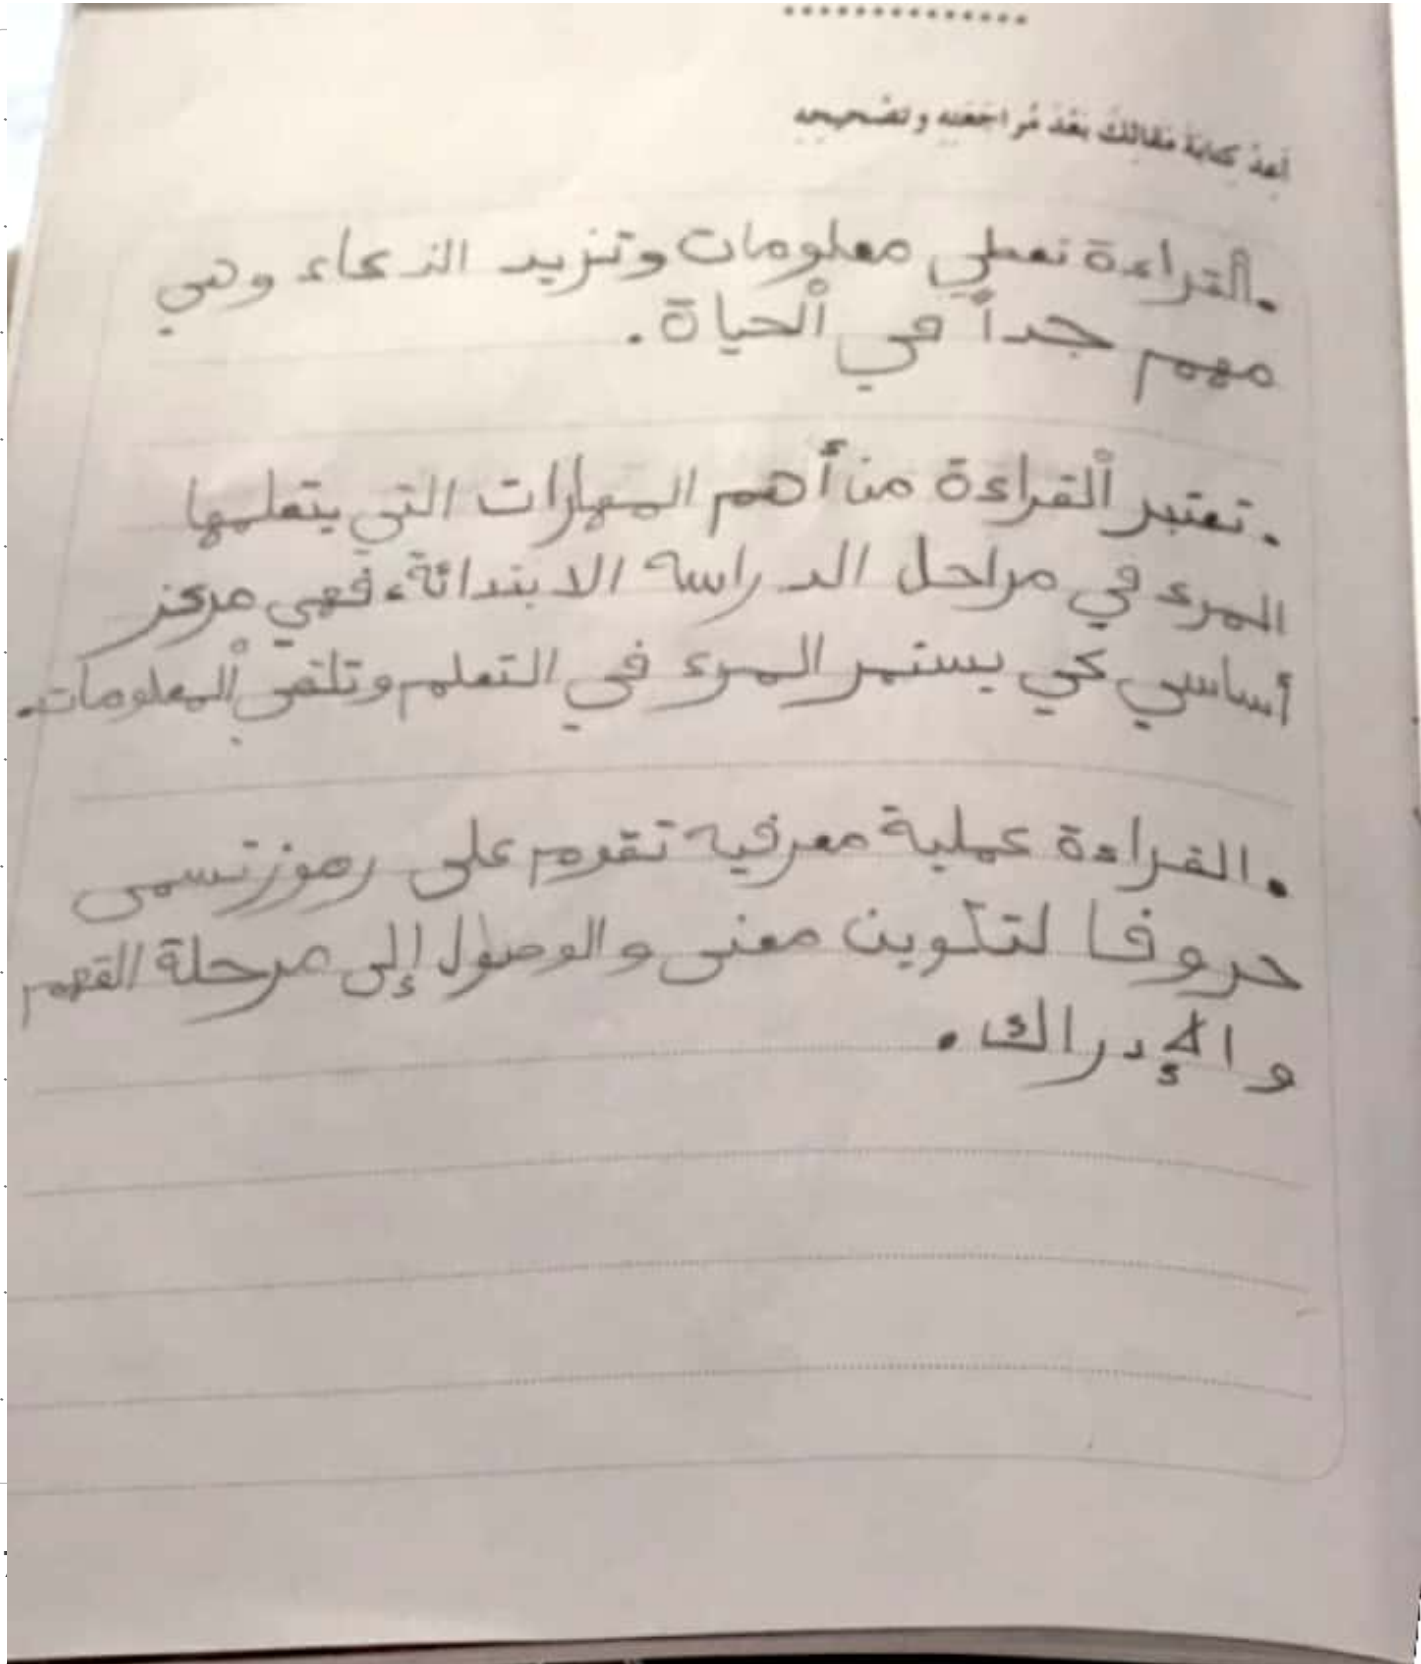 ..............
أَعِدْ كِتابَةَ مَقالِكَ بَعْدَ مُراجَعَتِهِ وتَصْحيحِهِ
.ألْقراءة تعطي معلومات وتزيد الذكاء وهي
مهم جداً في ألْحياة.
.تعتبر ألْقراءة من أهم المهارات التي يتعلمها
المرء في مراحل الدراسه الابتدائة، فهي مركز
أساسي كي يستمر المرء في التعلم وتلقي ألْمعلومات.
.القراءة عملية معرفيه تقوم على رموز تسمى
حروفا لتكوين معنى والوصول إلى مرحلة الفهم
والإدراك.